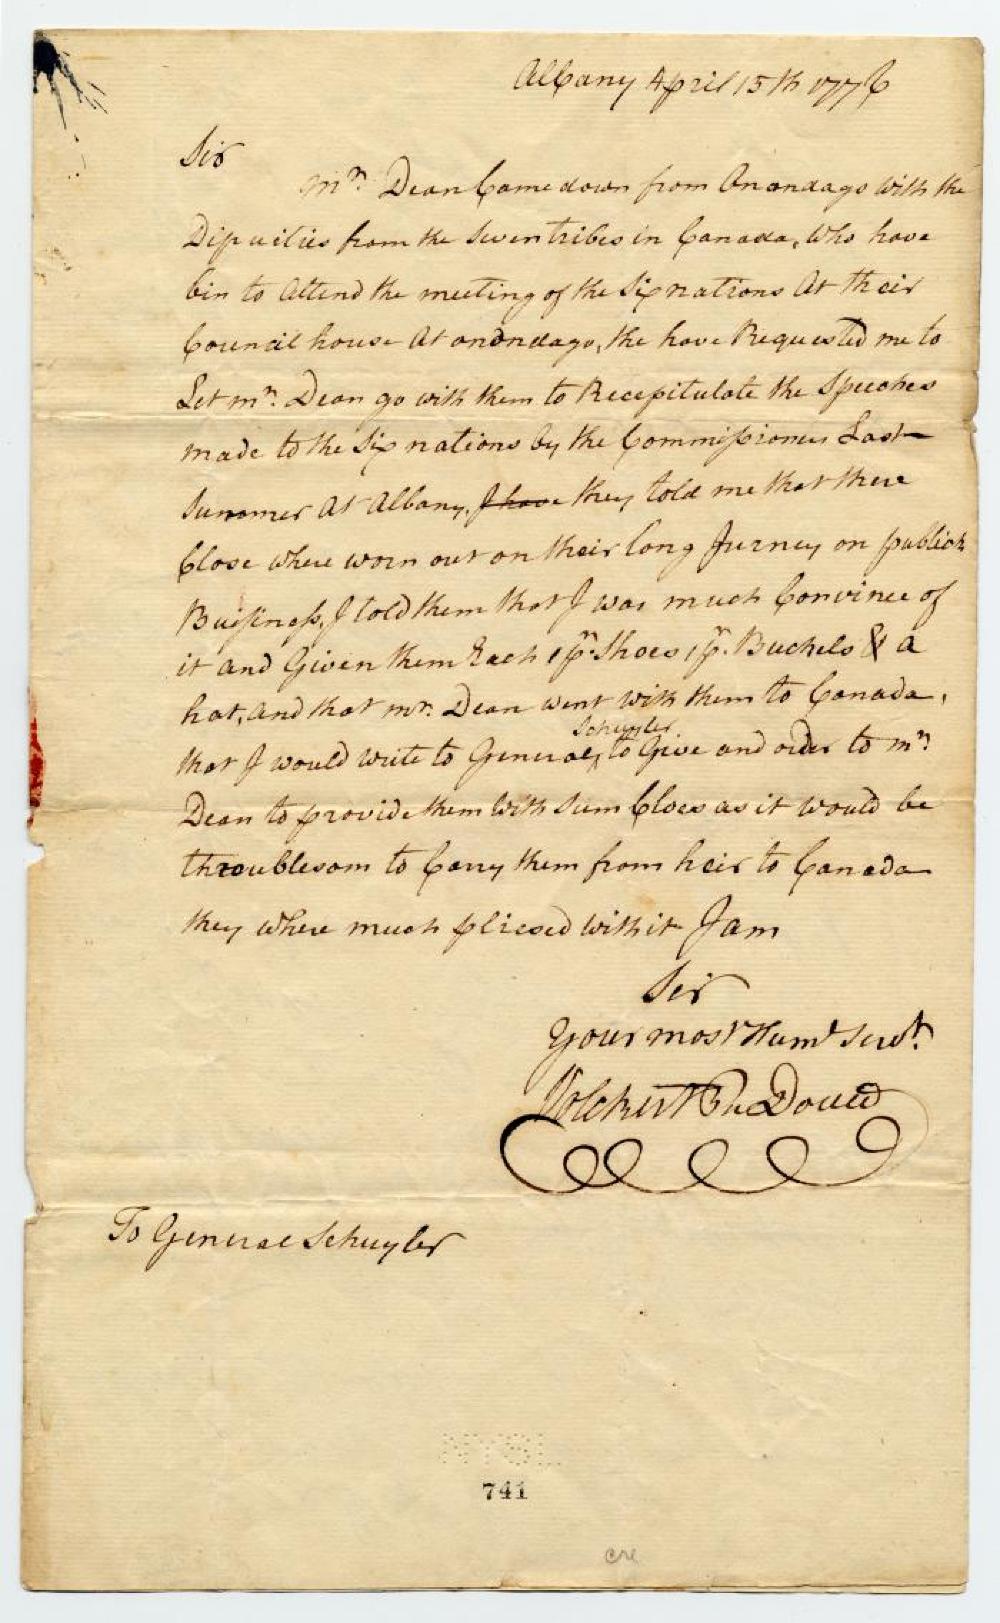 Albany April 15th 1776
Sir
Mr. Dean Came down from Onondago with the
Diputities from the seven tribes in Canada, Who have
bin to Attend the meeting of the Six nations At their
Council house At onondago, the have Requested me to
Let mr. Dean go with them to Recepitulate the Speeches
made to the Six nations by the Commissioners Last
Summer At Albany, I have they told me that there
Close where worn out on their long Jurney on publick
Buissiness, I told them that I was much Convince of
it and Given them Each 1 pr. Shoes 1 pr. Buckels & a
hat, and that mr. Dean went with them to Canada,
that I would write to General Schuyler to Give and order to mr.
Dean to provide them With sum Cloes as it would be
throublesom to Carry them from heir to Canada
they where much pliesed with it I am
Sir
Your most Humb Servt.
Volckert P. Douw
To General Schuyler
NYSL
741
cre